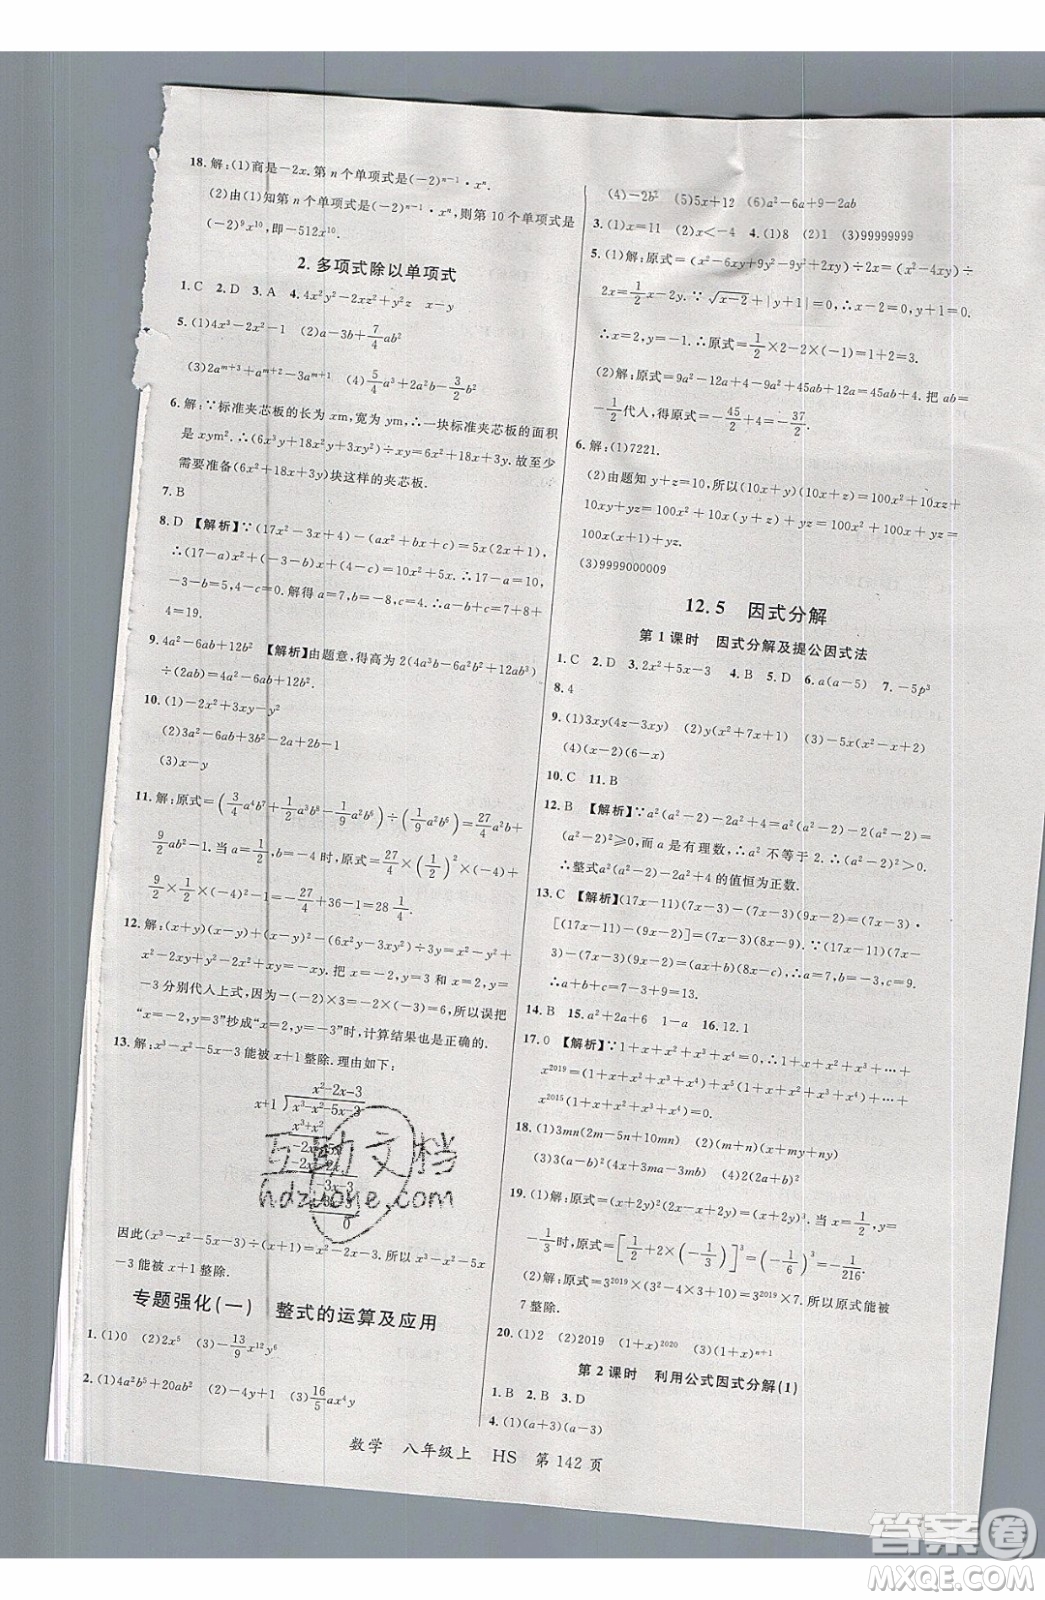 18.解:(1)商是-2x.第n个单项式是(-2)ⁿ⁻¹·xⁿ.
(2)由(1)知第n个单项式是(-2)ⁿ⁻¹·xⁿ,则第10个单项式是
(-2)⁹x¹⁰,即-512x¹⁰.
2.多项式除以单项式
1.C 2.D 3.A 4.4x²y²-2xz²+y²z x-y
5.(1)4x³-2x²-1 (2)a-3b+7/4ab²
(3)2aᵐ⁺³+aᵐ⁺²-3aᵐ⁺¹ (4)5/4a³+2a²b-3/2b²
6.解:∵标准夹芯板的长为xm,宽为ym,∴一块标准夹芯板的面积
是xym².∴(6x³y+18x²y+3xy²)÷xy=6x²+18x+3y.故至少
需要准备(6x²+18x+3y)块这样的夹芯板.
7.B
8.D 【解析】∵(17x²-3x+4)-(ax²+bx+c)=5x(2x+1),
∴(17-a)x²+(-3-b)x+(4-c)=10x²+5x.∴17-a=10,
-3-b=5,4-c=0.解得a=7,b=-8,c=4.∴a-b+c=7+8+
4=19.
9.4a²-6ab+12b² 【解析】由题意,得高为2(4a³b-6a²b²+12ab³)
÷(2ab)=4a²-6ab+12b².
10.(1)-2x²+3xy-y²
(2)3a²-6ab+3b²-2a+2b-1
(3)x-y
11.解:原式=(3/4a⁴b⁷+1/2a³b⁸-1/9a²b⁶)÷(1/9a²b⁶)=27/4a²b+
9/2ab²-1.当a=1/2,b=-4时,原式=27/4×(1/2)²×(-4)+
9/2×1/2×(-4)²-1=-27/4+36-1=28 1/4.
12.解:(x+y)(x-y)+(x-y)²-(6x²y-2xy²)÷2y=
x²-y²+x²-2xy+y²-3x²+xy=-x²-xy.
-3分别代入上式,因为-(-2)×3=-2×(-3)=6,所以误把
“x=-2,y=3”抄成“x=2,y=-3”时,计算结果也是正确的.
13.解:x³-x²-5x-3能被x+1整除.理由如下:
x²-2x-3
x+1 x³-x²-5x-3
x³+x²
-2x²-5x
-2x²-2x
-3x-3
-3x-3
0
因此(x³-x²-5x-3)÷(x+1)=x²-2x-3.所以x³-x²-5x
-3能被x+1整除.
专题强化(一) 整式的运算及应用
1.(1)0 (2)2x⁵ (3)-13/9x¹²y⁶
2.(1)4a²b⁵+20ab² (2)-6a²b (3)16/5ax⁴y
(4)-2b² (5)5x+12 (6)a²-6a+9-2ab
3.(1)x=11 (2)x<-4 4.(1)8 (2)1 (3)99999999
5.(1)解:原式=(x²-6xy+9y²-9y²+2xy)÷2x=(x²-4xy)÷
2x=1/2x-2y.∵√x-2+|y+1|=0,∴x-2=0,y+1=0.
∴x=2,y=-1.∴原式=1/2×2-2×(-1)=3.
(2)解:原式=9a²-12a+4-9a²+12a+45ab=45ab+4.把ab=
-1/2代入,得原式=-45/2+4=-37/2.
6.解:(1)7221.
(2)由题知y+z=10,所以(10x+y)(10x+z)=100x²+10xz+
10xy+yz=100x²+10x(y+z)+yz=100x²+100x+yz=
100x(x+1)+yz.
(3)9999000009
12.5 因式分解
第1课时 因式分解及提公因式法
1.C 2.D 3.2x²+5x-3 4.B 5.D 6.a(a-5) 7.-5p³
8.4
9.(1)3xy(4z-3xy) (2)y(x²+7x+1) (3)-5x(x²-2x+3)
(4)(x-2)(6-x)
10.C 11.B
12.B 【解析】∵a²(a²-2)-2a²+4=a²(a²-2)-2(a²-2)=
(a²-2)²≥0,而a是有理数,∴a²不等于2.∴(a²-2)²>0.
∴整式a²(a²-2)-2a²+4的值恒为正数.
13.C 【解析】(17x-11)(7x-3)-(7x-3)(9x-2)=(7x-3)·
[(17x-11)-(9x-2)]=(7x-3)(8x-9).∵(17x-11)(7x-
3)-(7x-3)(9x-2)=(ax+b)(8x-c),∴a=7,b=-3,c=9.
∴a+b+c=7-3+9=13.
14.B 15.a²+2a+6 1-a 16.12.1
17.0 【解析】∵1+x+x²+x³+x⁴=0,∴1+x+x²+x³+…+
x²⁰¹⁹=(1+x+x²+x³+x⁴)+x⁵(1+x+x²+x³+x⁴)+…+
x²⁰¹⁵(1+x+x²+x³+x⁴)=0.
18.(1)3mn(2m-5n+10mn) (2)(m+n)(x+my+ny)
(3)3(2x+b)(4x+3ma-3mb) (4)2(a+b)²
19.(1)解:原式=(x+2y)²(x-2y+4y)=(x+2y)³.当x=1/2,y=
-1/3时,原式=[1/2+2×(-1/3)]³=(-1/6)³=-1/216.
(2)证明:原式=3²⁰¹⁹×(3²-4×3+10)=3²⁰¹⁹×7.所以原式能被
7整除.
20.(1)2 (2)2019 (1+x)²⁰²⁰ (3)(1+x)ⁿ⁺¹
第2课时 利用公式因式分解(1)
1.B 2.B 3.D
4.(1)(a+3)(a-3)
数学 八年级上 HS 第142页
互动文档
hdzuoye.com
答案圈
MXQE.COM